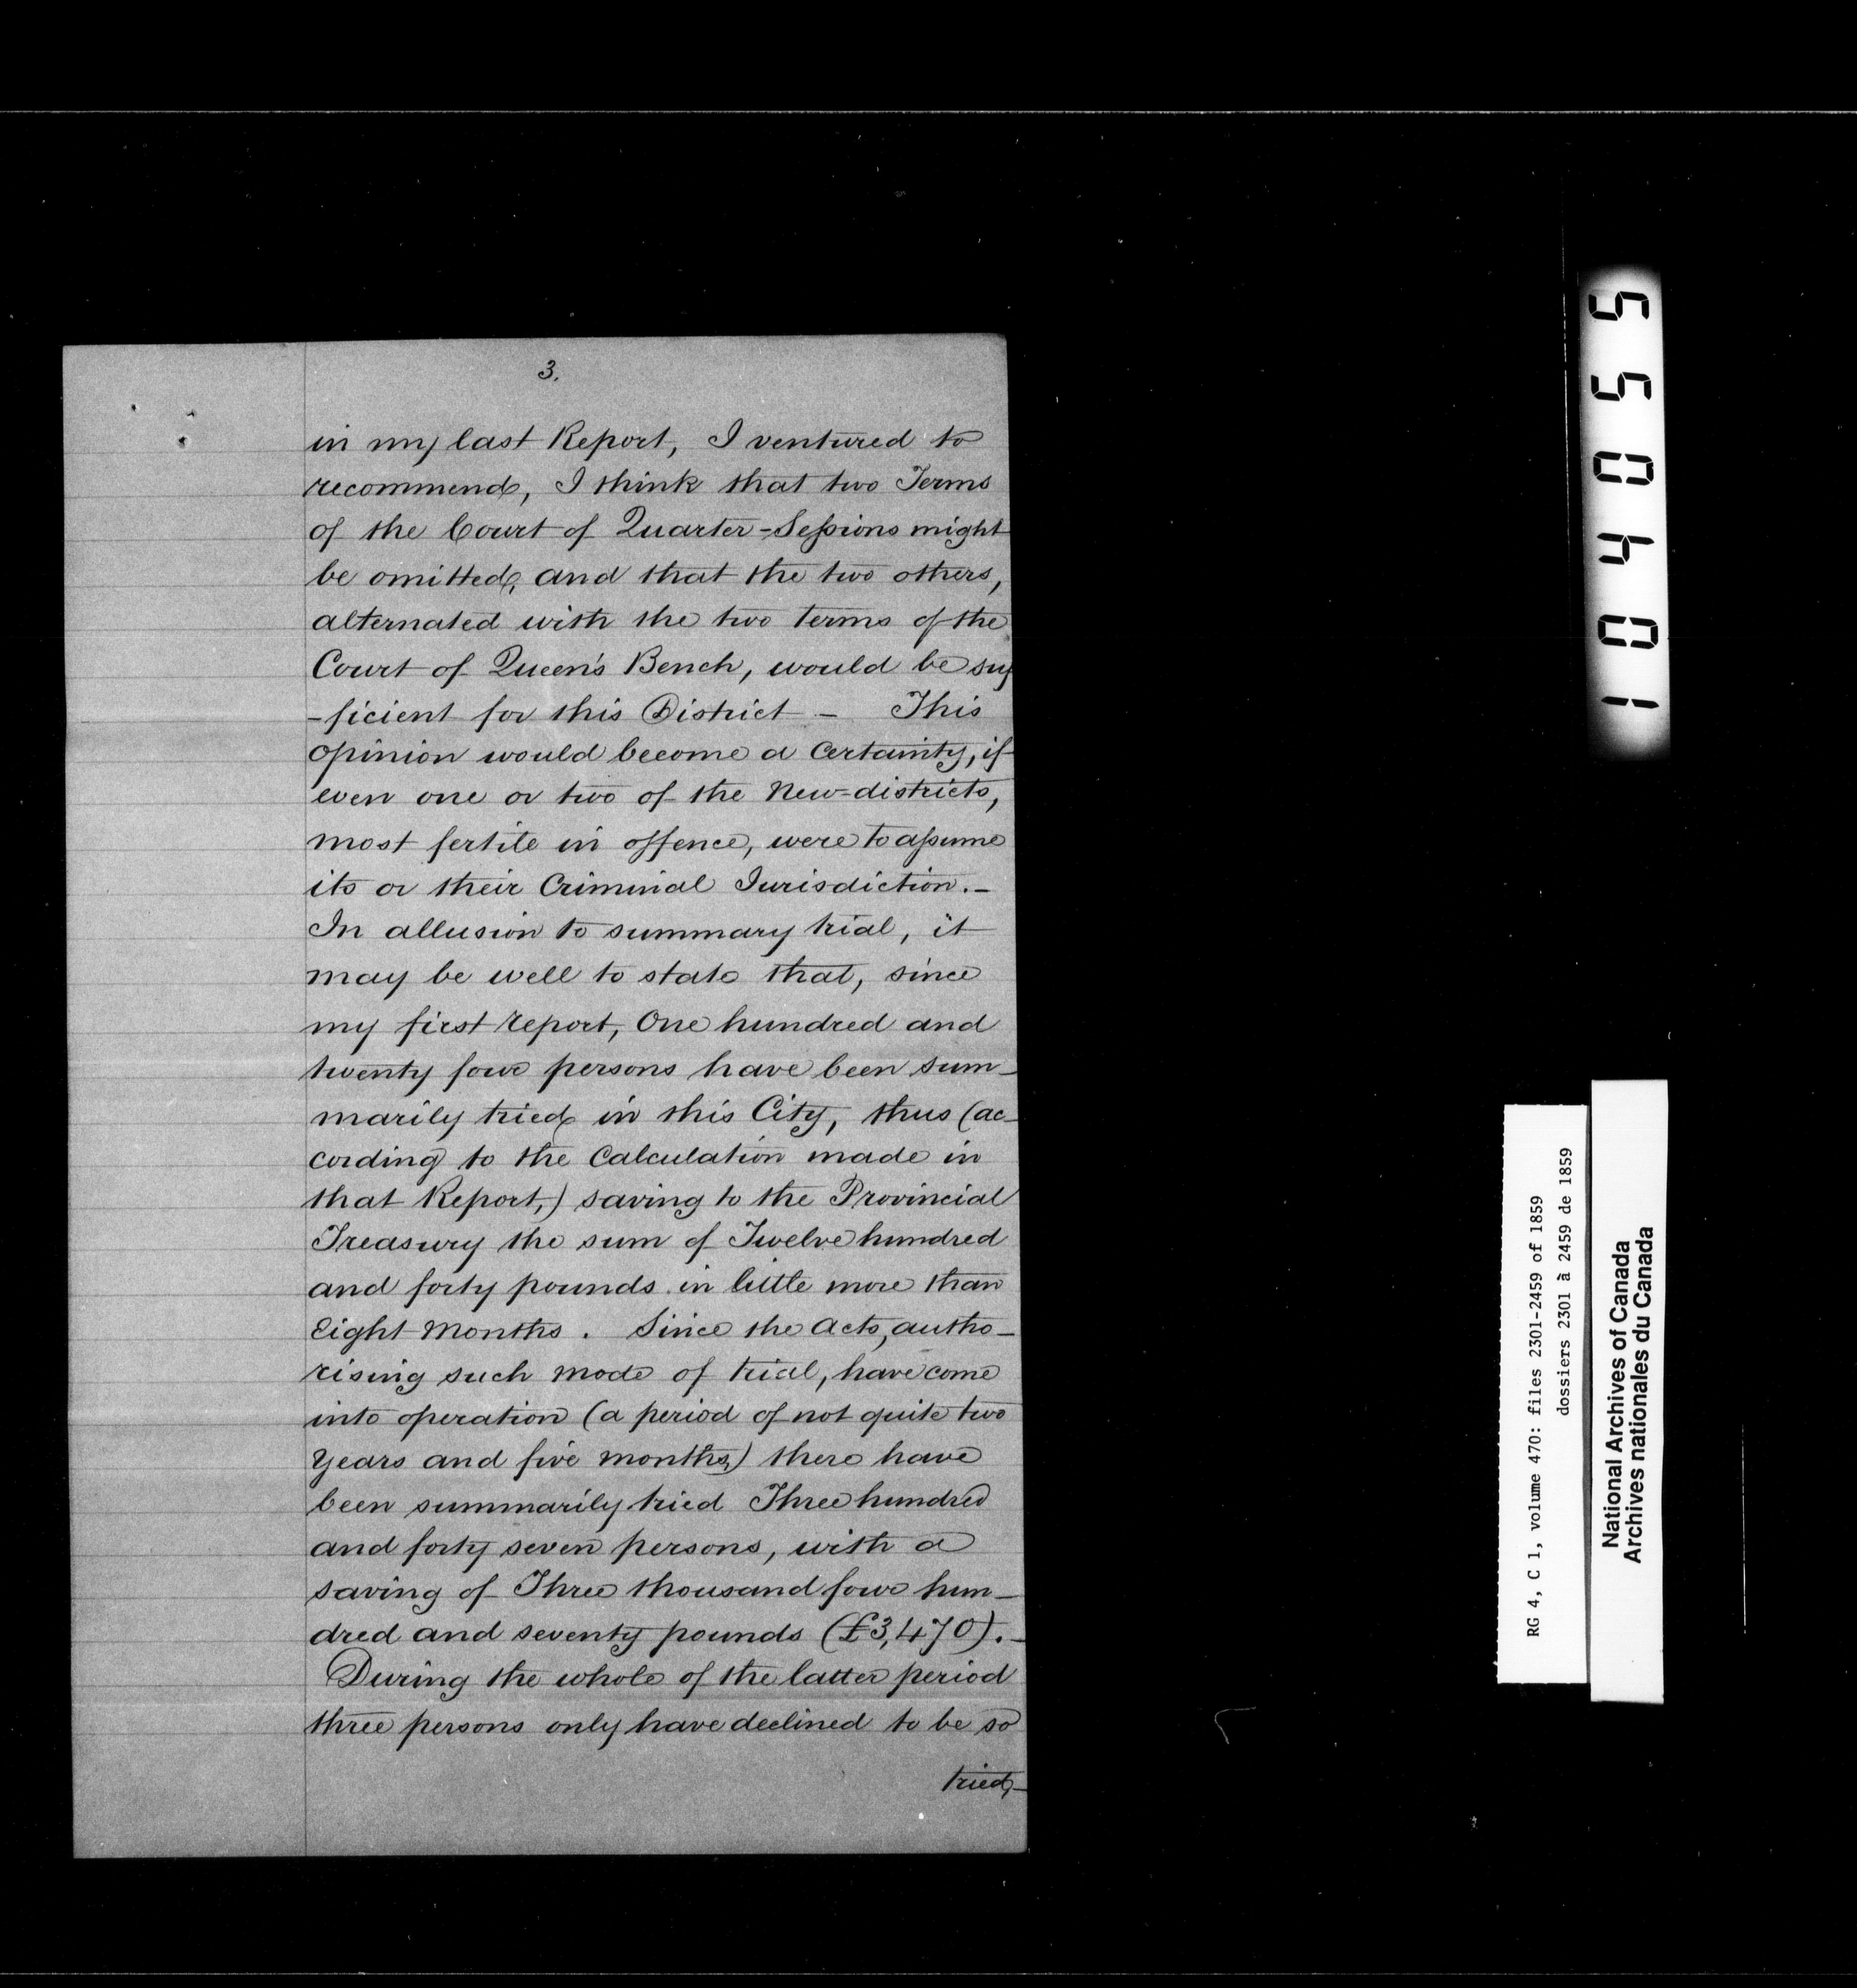 3.
in my last Report, I ventured to
recommend, I think that two Terms
of the Court of Quarter-Sessions might
be omitted, and that the two others,
alternated with the two terms of the
Court of Queen's Bench, would be suf
-ficient for this District - This
opinion would become a Certainty, if
even one or two of the New-districts,
most fertile in offence, were to assume
its or their Criminal Jurisdiction.-
In allusion to summary trial, it
may be well to state that, since
my first report, One hundred and
twenty four persons have been sum-
marily tried in this City, thus (ac-
cording to the Calculation made in
that Report,) saving to the Provincial
Treasury the sum of Twelve hundred
and forty pounds in little more than
Eight Months. Since the Acts, autho-
rising such mode of trial, have come
into operation (a period of not quite two
years and five months,) there have
been summarily tried Three hundred
and forty seven persons, with a
saving of Three thousand four hun-
dred and seventy pounds (£3,470).-
During the whole of the latter period
three persons only have declined to be so
tried,-
104055
RG 4, C 1, volume 470: files 2301-2459 of 1859
dossiers 2301 à 2459 de 1859
National Archives of Canada
Archives nationales du Canada